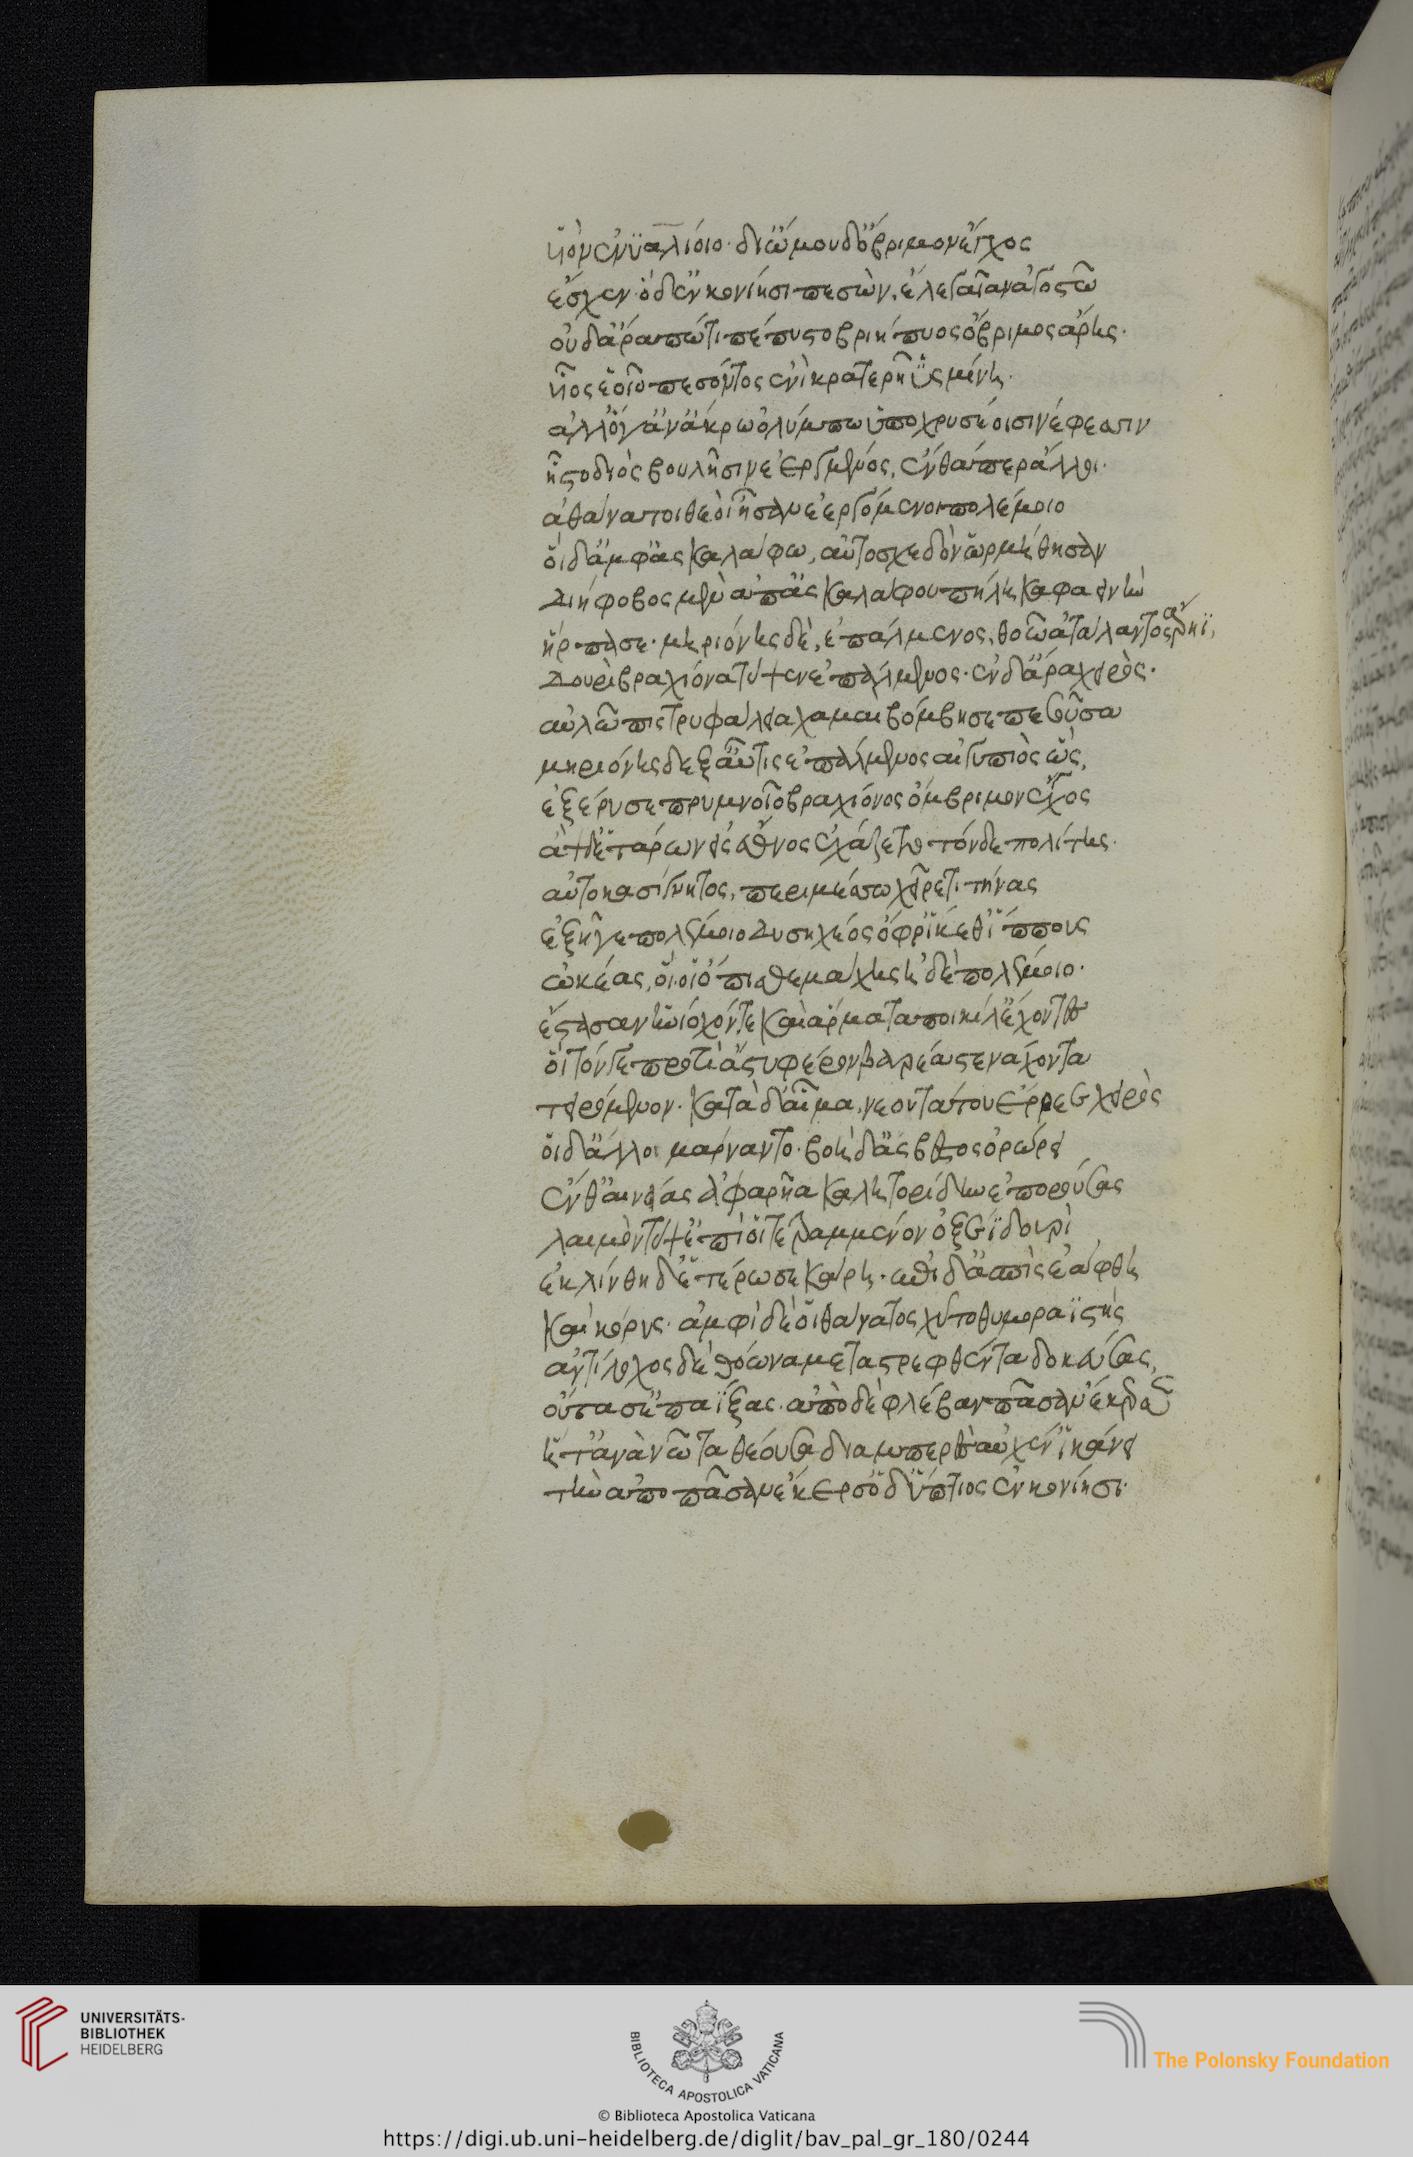 υἱὸν ἐνϋαλίοιο· δι' ὤμου δ' ὄβριμον ἔγχος
ἔσχεν· ὁ δ' ἐν κονίησι πεσὼν, ἕλε γαῖαν ἀγοστῶ
οὐδ' ἄρα πώ τι πέπυστο βριήπυος ὄβριμος ἄρης·
υἷος ἑοῖο πεσόντος ἐνὶ κρατερῆ ὑσμίνη·
ἀλλ' ὅγ' ἂν ἄκρω ὀλύμπω ὑπὸ χρυσέοισι νέφεσσιν
ἧστο διὸς βουλῆσιν ἐεργμένος, ἔνθά περ ἄλλοι·
ἀθάνατοι θεοὶ ἦσαν ἐεργόμενοι πολέμοιο
οἱ δ' ἀμφ' ἀσκαλάφω, αὐτοσχεδὸν ὡρμήθησαν
Δηήφοβος μὲν ἀπ' ἀσκαλάφου πήληκα φαεινὴν
ἥρπασε· μηριόνης δὲ, ἐπάλμενος, θοῶ ἀτάλαντος ἄρηϊ,
Δουρὶ βραχίονα τύψεν ἐπάλμενος· ἐν δ' ἄρα χειρὸς·
αὐλῶπις τρυφάλεια χαμαὶ βόμβησε πεσοῦσα
μηριόνης δ' ἐξαῦτις ἐπάλμενος αἰγυπιὸς ὣς,
ἐξέρυσε πρυμνοῖο βραχίονος ὄμβριμον ἔγχος
ἂψ δ' ἑτάρων εἰς ἔθνος ἐχάζετο τόνδε πολίτης·
αὐτοκασίγνητος, περὶ μέσσω χεῖρε τιτήνας
ἐξῆγε πολέμοιο Δυσηχέος ὄφρ' ἵκεθ' ἵππους
ὠκέας, οἵ οἱ ὄπισθε μάχης ἠδὲ πολέμοιο·
ἕστασαν ἡνίοχόν τε καὶ ἅρματα ποικίλ' ἔχοντες
οἳ τόν γε προτὶ ἄστυ φέρον βαρέα στενάχοντα
τειρόμενον· κατὰ δ' αἷμα, νεουτάτου ἔρρεε χειρὸς
οἱ δ' ἄλλοι μάρναντο· βοὴ δ' ἄσβεστος ὀρώρει
ἔνθ' αἰνείας ἀφαρῆα καλητορίδην ἐπορούσας
λαιμὸν τύψ' ἐπὶ οἷ τετραμμένον ὀξέϊ δουρὶ
ἐκλίνθη δ' ἑτέρωσε κάρη· ἐπὶ δ' ἀσπὶς ἑάφθη
καὶ κόρυς· ἀμφὶ δέ οἱ θάνατος χύτο θυμοραϊστής
ἀντίλοχος δὲ θόωνα μεταστρεφθέντα δοκεύσας,
οὔτασ' ἐπαΐξας· ἀπὸ δὲ φλέβαν πᾶσαν ἔκερσεν
ἥ τ' ἀνὰ νῶτα θέουσα διαμπερὲς αὐχέν' ἱκάνει
τὴν ἀπὸ πᾶσαν ἔκερσ' ὃ δ' ὕπτιος ἐν κονίησι·
UNIVERSITÄTS-
BIBLIOTHEK
HEIDELBERG
BIBLIOTECA APOSTOLICA VATICANA
The Polonsky Foundation
© Biblioteca Apostolica Vaticana
https://digi.ub.uni-heidelberg.de/diglit/bav_pal_gr_180/0244